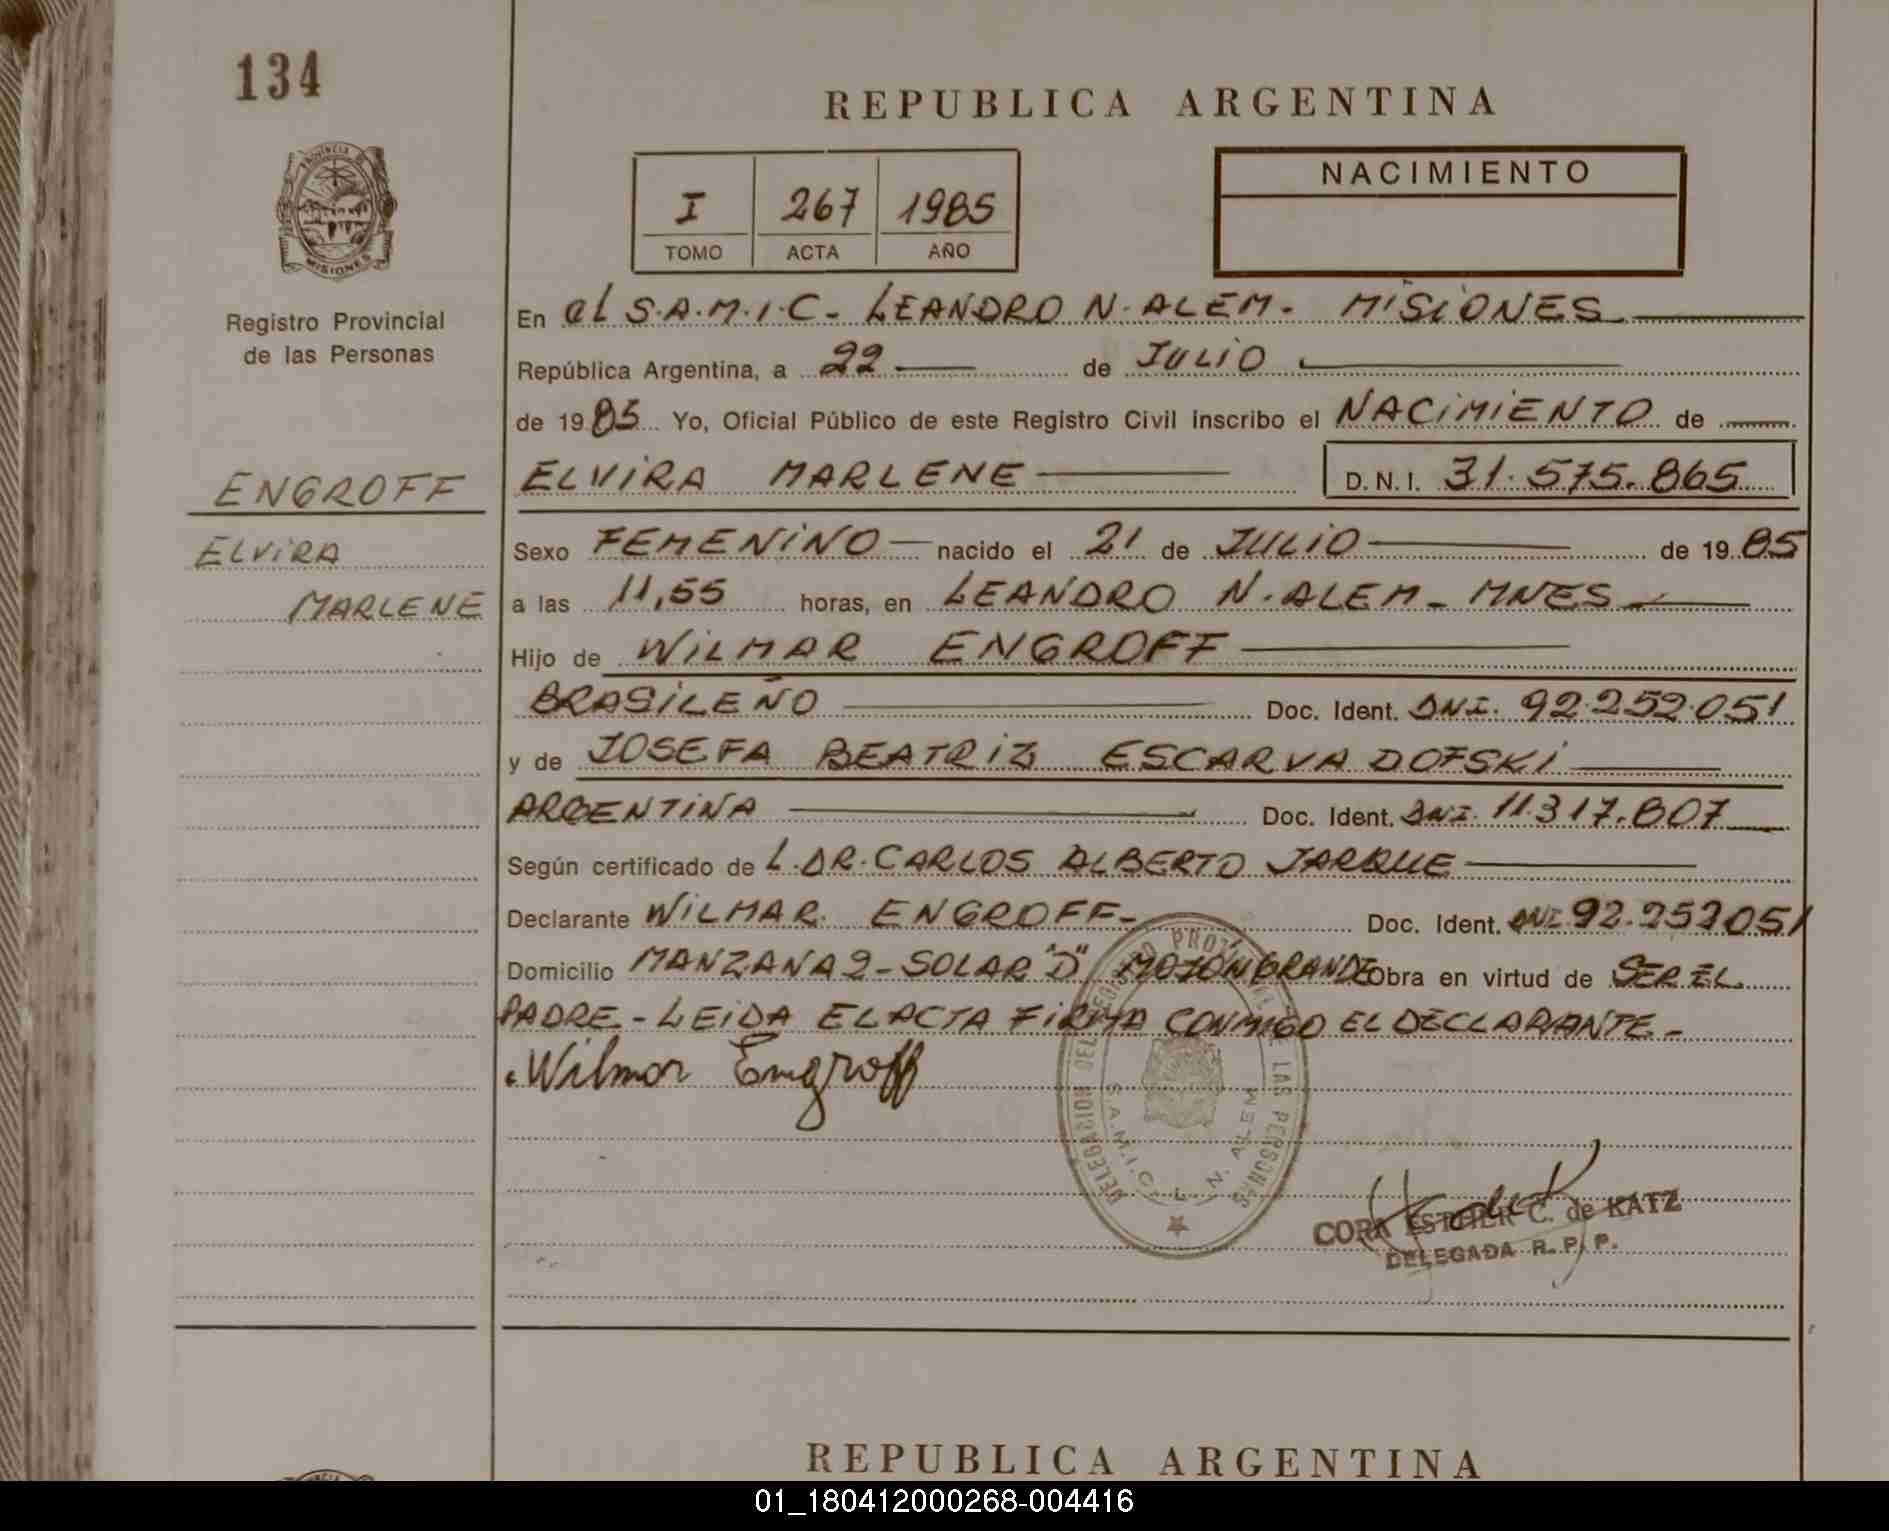 134
REPUBLICA ARGENTINA
PROVINCIA DE
MISIONES
Registro Provincial
de las Personas
I 267 1985
TOMO ACTA AÑO
NACIMIENTO
En el S.A.M.I.C- LEANDRO N. ALEM- MISIONES
República Argentina, a 22 de JULIO
de 1985 Yo, Oficial Público de este Registro Civil inscribo el NACIMIENTO de
ENGROFF
ELVIRA
MARLENE
ELVIRA MARLENE D.N.I. 31.575.865
Sexo FEMENINO nacido el 21 de JULIO de 1985
a las 11,55 horas, en LEANDRO N. ALEM- MNES
Hijo de WILMAR ENGROFF
BRASILEÑO Doc. Ident. DNI. 92.252.051
y de JOSEFA BEATRIZ ESCARVADOFSKI
ARGENTINA Doc. Ident. DNI. 11.317.807
Según certificado de L. DR. CARLOS ALBERTO JARQUE
Declarante WILMAR ENGROFF- Doc. Ident. DNI 92.252051
Domicilio MANZANA 2- SOLAR "D" MOJON GRANDE Obra en virtud de SER EL
PADRE- LEIDA EL ACTA FIRMA CONMIGO EL DECLARANTE-
Wilmar Engroff
DELEGACION DEL REGISTRO PROV. DE LAS PERSONAS
S.A.M.I.C. L. N. ALEM
CORA ESTHER C. de KATZ
DELEGADA R. P. P.
REPUBLICA ARGENTINA
01_180412000268-004416